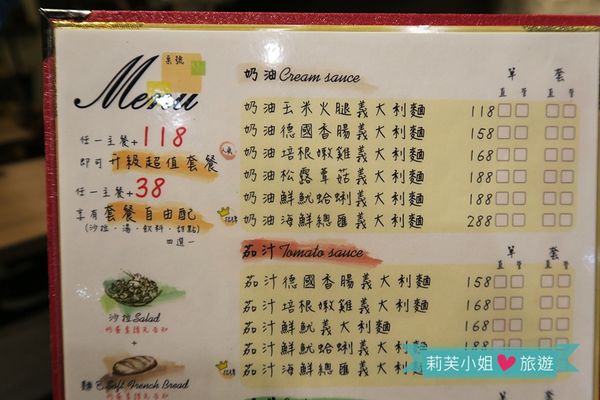 Menu
桌號
任一主餐+118
即可升級超值套餐
任一主餐+38
享有套餐自由配
(沙拉·湯·飲料·甜點)
四選一
沙拉Salad
+
French Bread
奶油Cream sauce 單 套
直 管 直 管
奶油玉米火腿義大利麵 118
奶油德國香腸義大利麵 158
奶油培根嫩雞義大利麵 168
奶油松露蕈菇義大利麵 188
奶油鮮魷蛤蜊義大利麵 188
奶油海鮮總匯義大利麵 288
茄汁Tomato sauce 單 套
直 管 直 管
茄汁德國香腸義大利麵 158
茄汁培根嫩雞義大利麵 168
茄汁鮮魷義大利麵 168
茄汁鮮魷蛤蜊義大利麵 188
茄汁海鮮總匯義大利麵
莉芙小姐♥旅遊